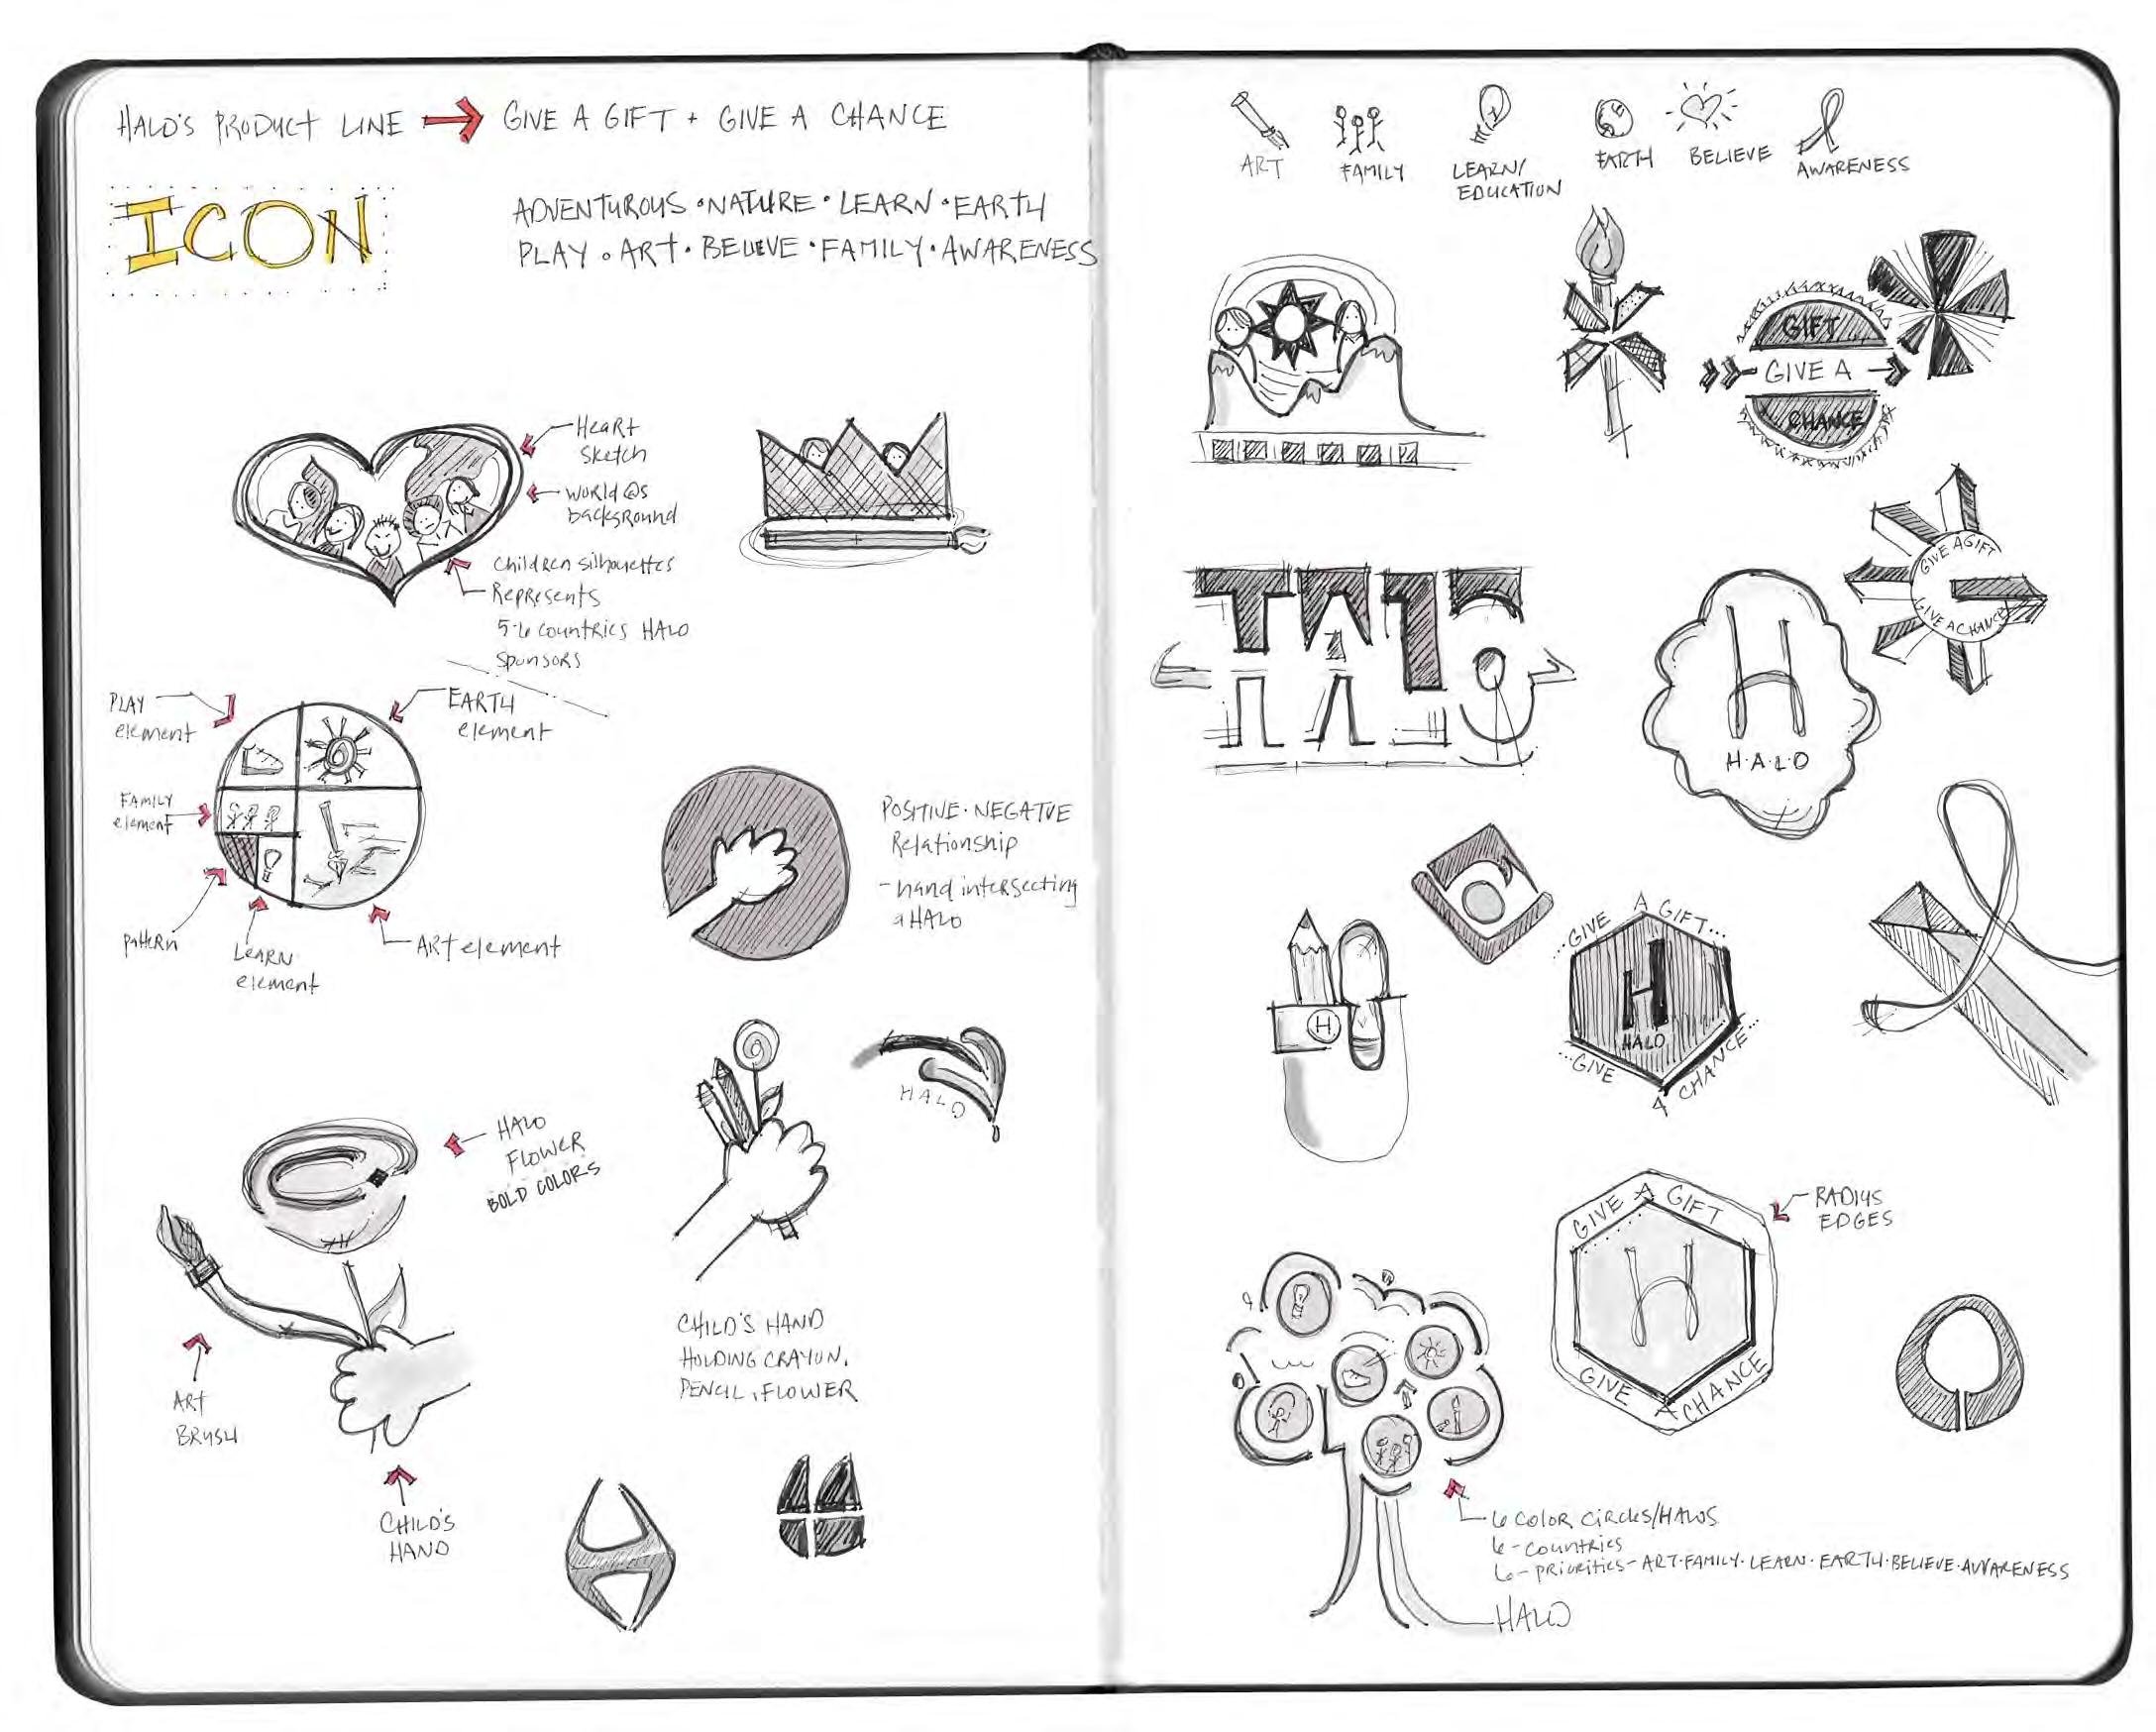 HALO'S PRODUCT LINE → GIVE A GIFT + GIVE A CHANCE
ICON
ADVENTUROUS • NATURE • LEARN • EARTH
PLAY • ART • BELIEVE • FAMILY • AWARENESS
Heart
Sketch
World as
background
Children silhouettes
Represents
5-6 countries HALO
Sponsors
PLAY
element
EARTH
element
FAMILY
element
pattern
LEARN
element
ART element
POSITIVE • NEGATIVE
Relationship
- hand intersecting
a HALO
HALO
FLOWER
BOLD COLORS
HALO
ART
BRUSH
CHILD'S
HAND
CHILD'S HAND
HOLDING CRAYON,
PENCIL, FLOWER
ART
FAMILY
LEARN/
EDUCATION
EARTH
BELIEVE
AWARENESS
GIFT
GIVE A
CHANCE
GIVE A GIFT
GIVE A CHANCE
H
H•A•L•O
H
GIVE A GIFT...
H
HALO
...GIVE A CHANCE...
GIVE A GIFT
H
GIVE A CHANCE
RADIUS
EDGES
6 COLOR CIRCLES/HALOS
6 - countries
6 - priorities - ART • FAMILY • LEARN • EARTH • BELIEVE • AWARENESS
HALO